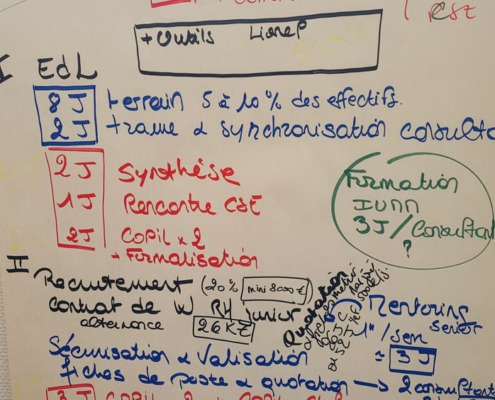 RSE
+ Outils
I EdL
8 J terrain 5 à 10 % des effectifs.
2 J trame & synchronisation consulta
2 J Synthèse
1 J Rencontre CSE
2 J COPIL x 2
+ Formalisation
Formation
3 J / Consultant
?
II Recrutement (20 % mini 8000 €)
contrat de W RH junior
alternance 26 K€
Quotation
Mentoring
senior
/ sem
= 3 J
Sécurisation & Validation
fiches de poste & quotation → 2 consultant
3 J COPIL